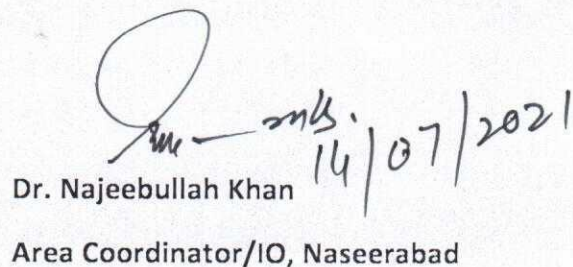 14/07/2021
Dr. Najeebullah Khan
Area Coordinator/IO, Naseerabad